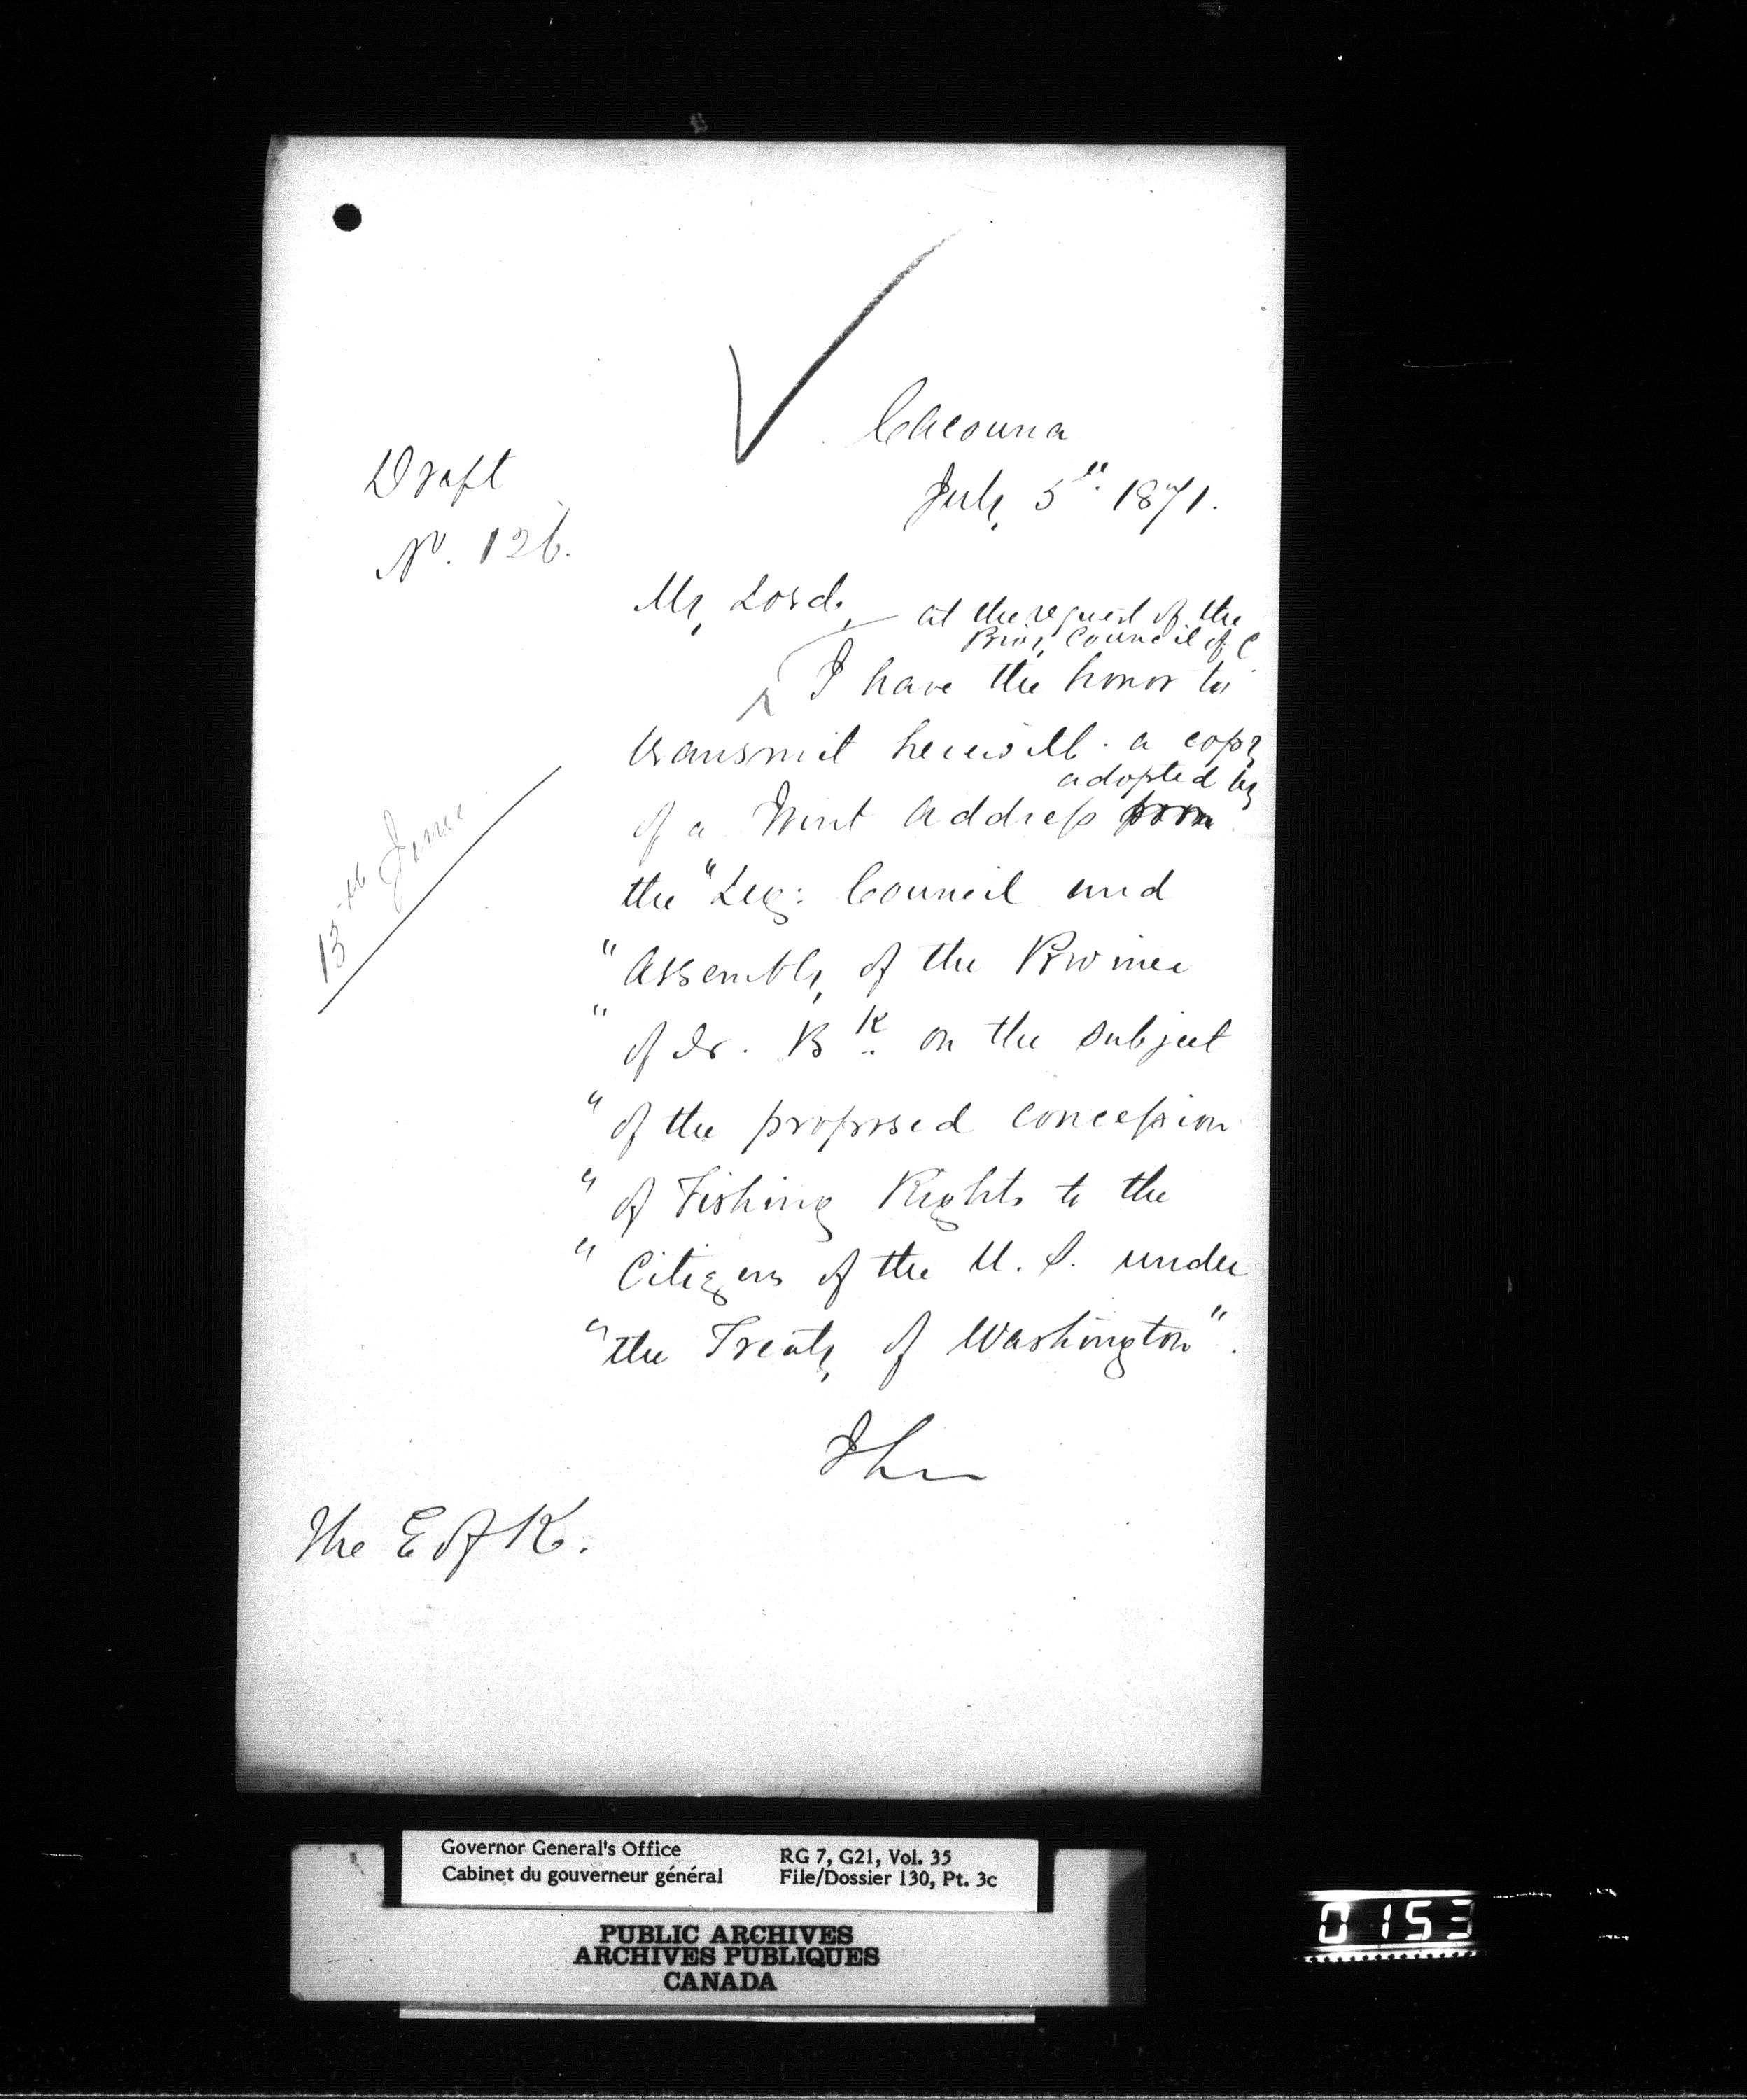 Cacouna
July 5th 1871.
Draft
No. 126.
My Lord,
at the request of the
Privy Council of C
I have the honor to
transmit herewith a copy
adopted by
of a Joint Address from
the "Leg: Council and
" Assembly of the Province
" of Nw. Bk. on the subject
" of the proposed concession
" of Fishing Rights to the
" Citizens of the U. S. under
" the Treaty of Washington".
13th June
I h
The E of K.
Governor General's Office
Cabinet du gouverneur général
RG 7, G21, Vol. 35
File/Dossier 130, Pt. 3c
PUBLIC ARCHIVES
ARCHIVES PUBLIQUES
CANADA
0153